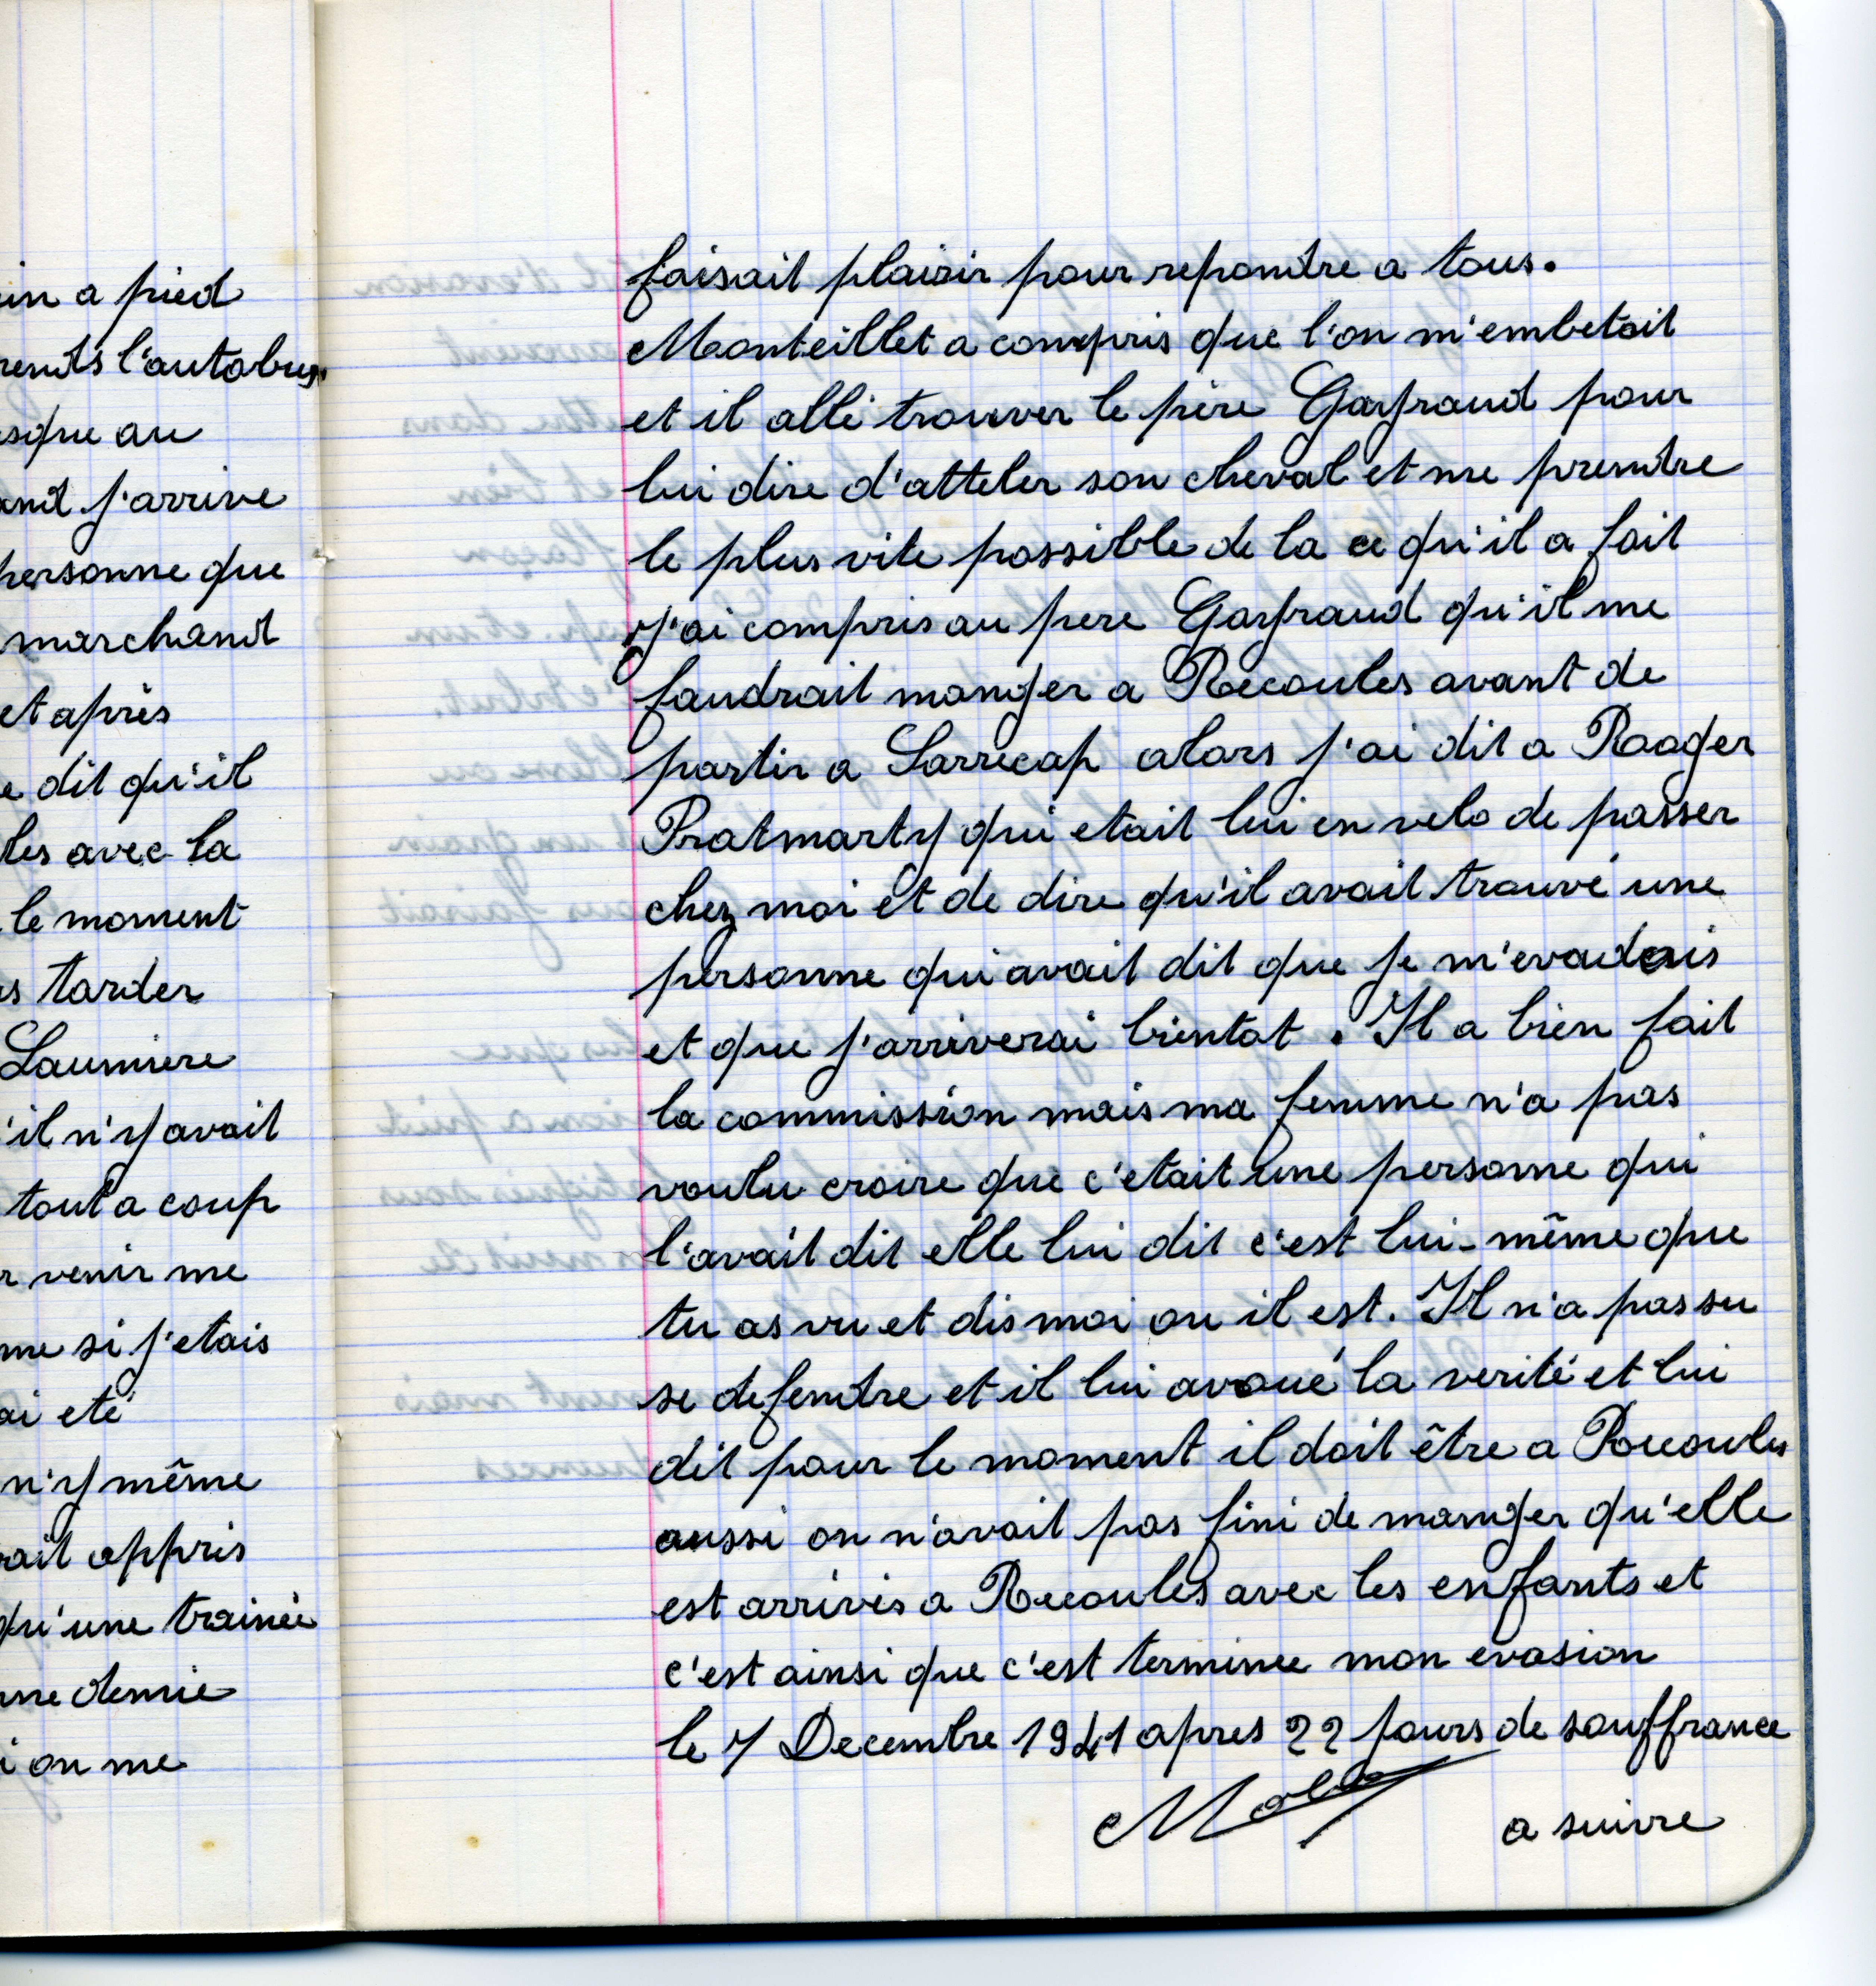 in a pied
rends l'autobus
sque au
and j'arrive
personne que
marchand
et après
e dit qu'il
les avec la
le moment
s tarder
Laumiere
'il n'y avait
tout a coup
r venir me
me si j'etais
ai eté
n'y même
vait appris
qu'une trainée
une demie
i on me
faisait plaisir pour repondre a tous.
Monteillet a compris que l'on m'embetait
et il allé trouver le père Gayraud pour
lui dire d'atteler son cheval et me prendre
le plus vite possible de la ce qu'il a fait
j'ai compris au pere Gayraud qu'il me
faudrait manger a Recoules avant de
partir a Larrecap alors j'ai dit a Rooger
Pratmarty qui etait lui en velo de passer
chez moi et de dire qu'il avait trouvé une
personne qui avait dit que je m'evadais
et que j'arriverai bientot. Il a bien fait
la commission mais ma femme n'a pas
voulu croire que c'etait une personne qui
l'avait dit elle lui dit c'est lui-même que
tu as vu et dis moi ou il est. Il n'a pas su
se defendre et il lui avoué la verité et lui
dit pour le moment il doit être a Recoules
aussi on n'avait pas fini de manger qu'elle
est arrivés a Recoules avec les enfants et
c'est ainsi que c'est terminee mon evasion
le 7 Decembre 1941 apres 22 jours de souffrance
a suivre